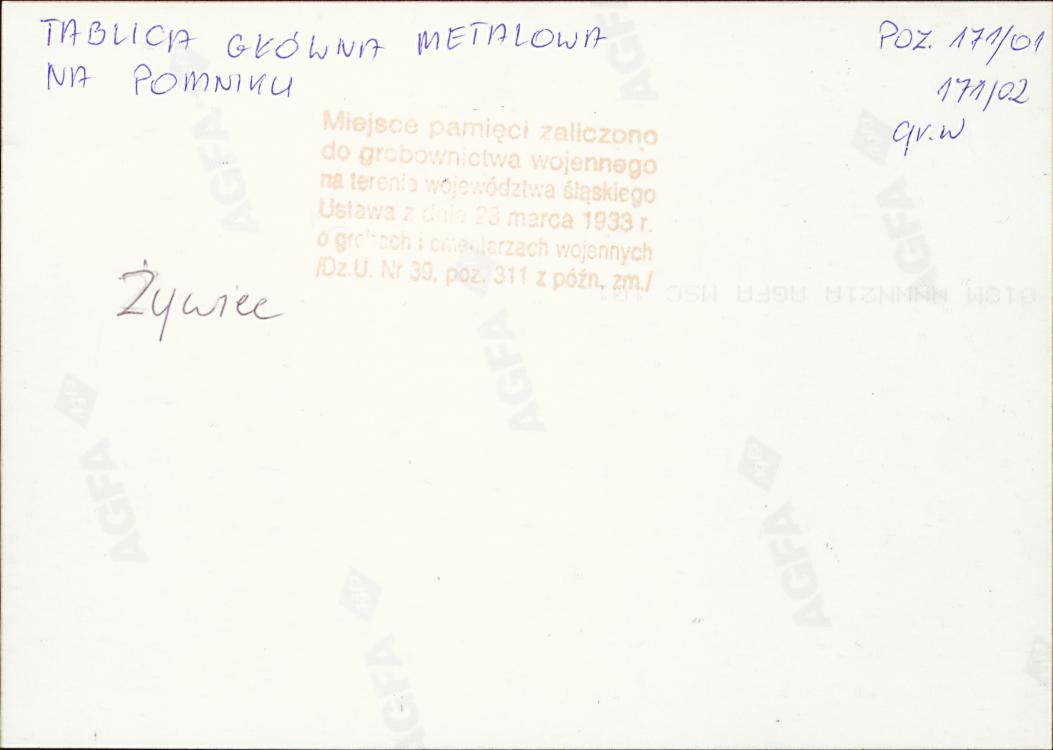 TABLICA GŁÓWNA METALOWA
NA POMNIKU
POZ. 171/01
171/02
gr.W
Miejsce pamięci zaliczono
do grobownictwa wojennego
na terenie województwa śląskiego
Ustawa z dnia 23 marca 1933 r.
o grobach i cmentarzach wojennych
/Dz.U. Nr 39, poz. 311 z późn. zm./
Żywiec
AGFA
AGFA
AGFA
AGFA
AGFA
AGFA
AGFA